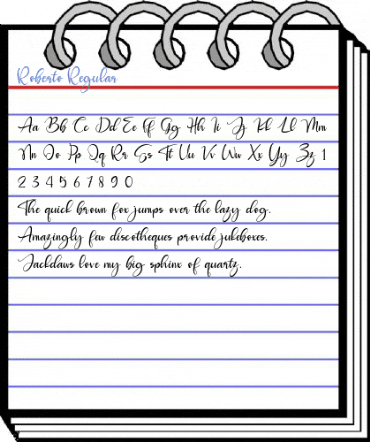 Roberto Regular
Aa Bb Cc Dd Ee Ff Gg Hh Ii Jj Kk Ll Mm
Nn Oo Pp Qq Rr Ss Tt Uu Vv Ww Xx Yy Zz 1
2 3 4 5 6 7 8 9 0
The quick brown fox jumps over the lazy dog.
Amazingly few discotheques provide jukeboxes.
Jackdaws love my big sphinx of quartz.